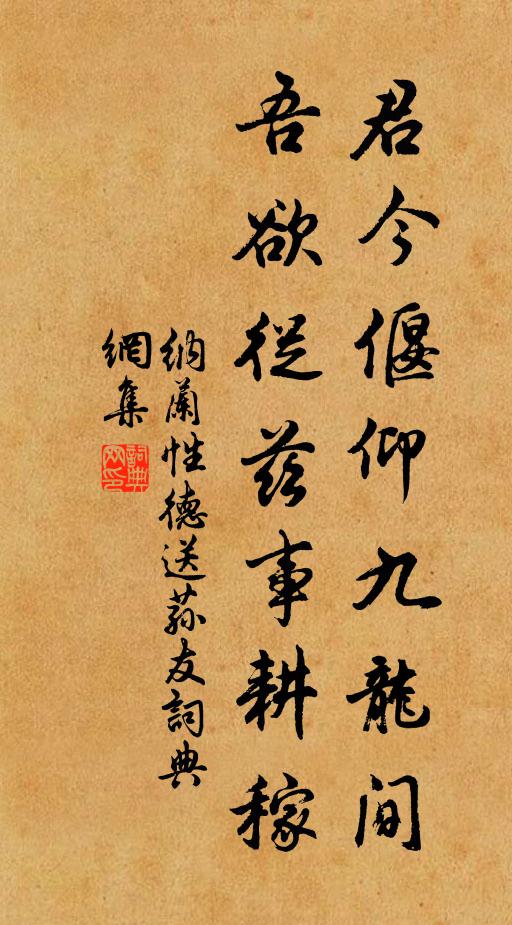 君今偃仰九龍间
吾欲從兹事耕稼
纳蘭性德送荪友詞典
網集
詞典网印